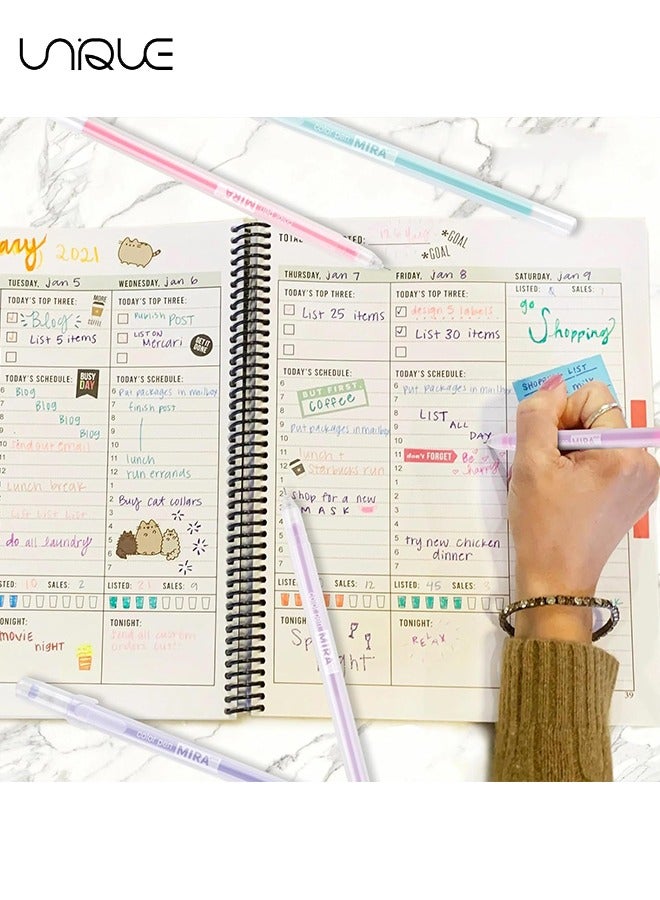 UNIQUE
color pen MIRA
MIRA
ary 2021
TUESDAY, Jan 5
TODAY'S TOP THREE:
MORE
COFFEE
Blog
List 5 items
TODAY'S SCHEDULE:
BUSY
DAY
Blog
Blog
Blog
Blog
Find out email
Lunch break
do all laundry
STED: 10 SALES: 2
ONIGHT:
movie
night
WEDNESDAY, Jan 6
TODAY'S TOP THREE:
Publish POST
LIST ON
Mercari
GET IT
DONE
TODAY'S SCHEDULE:
Put packages in mailbox
finish post
lunch
run errands
Buy cat collars
LISTED: 21 SALES: 9
TONIGHT:
TOTAL
TED:
*GOAL
*GOAL
THURSDAY, Jan 7
TODAY'S TOP THREE:
List 25 items
TODAY'S SCHEDULE:
BUT FIRST,
COFFEE
Put packages in mailbox
lunch +
Starbucks run
Shop for a new
MASK
LISTE
SALES: 12
TONIGH
FRIDAY, Jan 8
TODAY'S TOP THREE:
design 5 labels
List 30 items
TODAY'S SCHEDULE:
Put packages in mailbox
LIST
ALL
DAY
don't FORGET
try new chicken
dinner
LISTED: 45 SALES:
TONIGHT:
RELAX
SATURDAY, Jan 9
LISTED: SALES:
go
Shopping
SHOPPING LIST
milk
MIRA
color pen MIRA
color pen MIRA
39